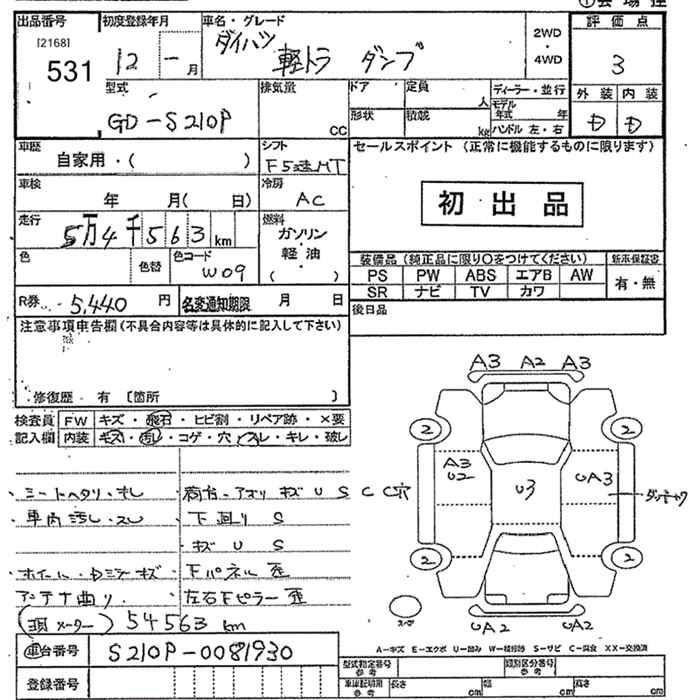 出品番号
[2168]
531
初度登録年月
12 - 月
車名・グレード
ダイハツ 軽トラ ダンプ
2WD
・
4WD
評価点
3
外装 内装
D D
型式
GD-S210P
排気量
CC
ドア 定員
人
形状 積載
kg
ディーラー・並行
モデル
年式 年
ハンドル 左・右
車歴
自家用・( )
シフト
F5速MT
車検
年 月( 日)
冷房
AC
走行
5万4千563 km
燃料
ガソリン
・
軽油
( )
色
色替
色コード
W09
R券 5,440 円
名変通知期限 月 日
セールスポイント (正常に機能するものに限ります)
初出品
装備品 (純正品に限り○をつけてください)
新車保証書
PS PW ABS エアB AW
SR ナビ TV カワ
有・無
後日品
注意事項申告欄(不具合内容等は具体的に記入して下さい)
修復歴 有 〔箇所 〕
検査員
記入欄
FW キズ・飛石・ヒビ割・リペア跡・×要
内装 キズ・汚し・コゲ・穴・スレ・キレ・破し
・シートヘタリ・オレ
・車内汚し・スレ
・ホイール・Dミラーキズ
アンテナ曲り.
荷台-アオリ キズ U S C C穴
下回り S
・キズ U S
下パネル 歪
左右Fピラー 歪
(現メーター) 54563 km
A3 A2 A3
2 2
A3
U2
U3
UA3
ダンジャク
2 2
スペア
UA2 UA2
A-キズ E-エクボ U-凹み W-補修跡 S-サビ C-腐食 XX-交換済
車台番号
S210P-0081930
登録番号
型式指定番号
参考
類別区分番号
参考
車庫証明用
参考
長さ cm 幅 cm 高さ cm